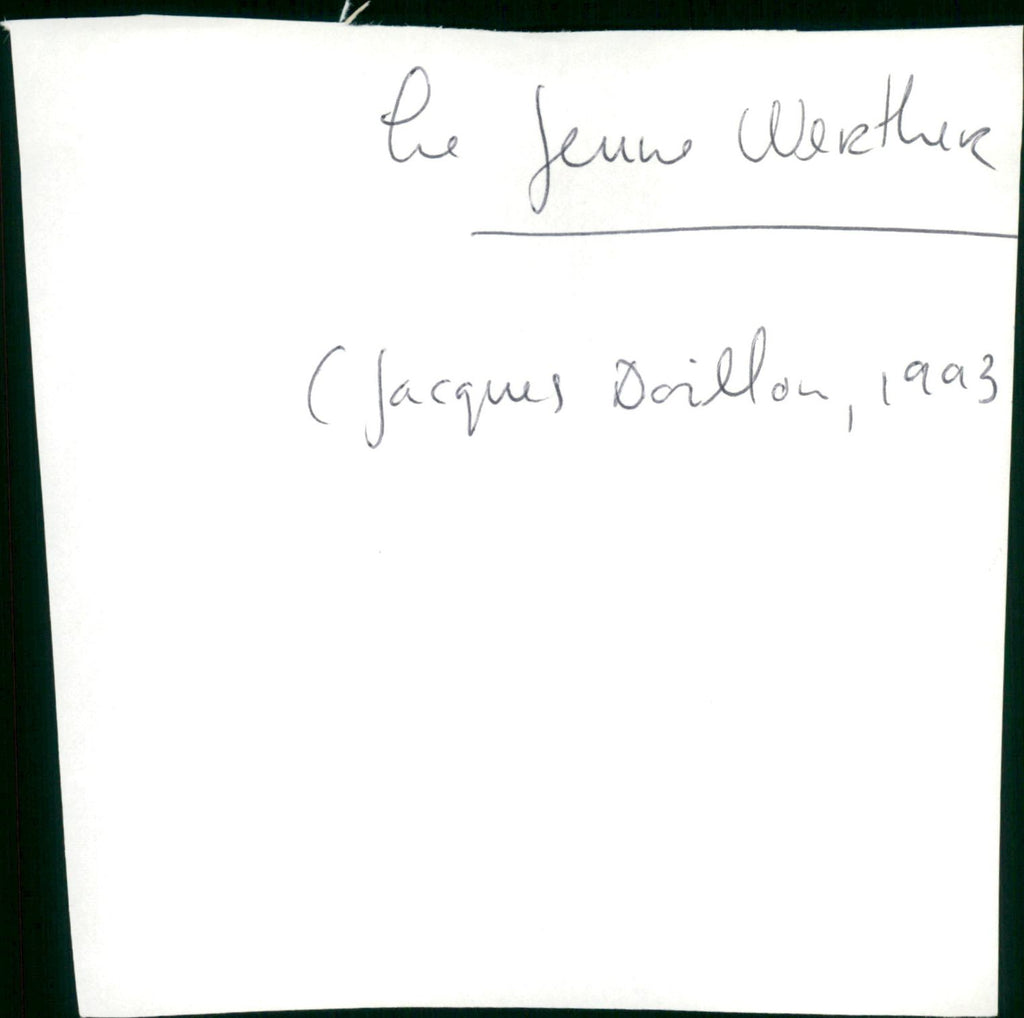 Le Jeune Werther
(Jacques Doillon, 1993